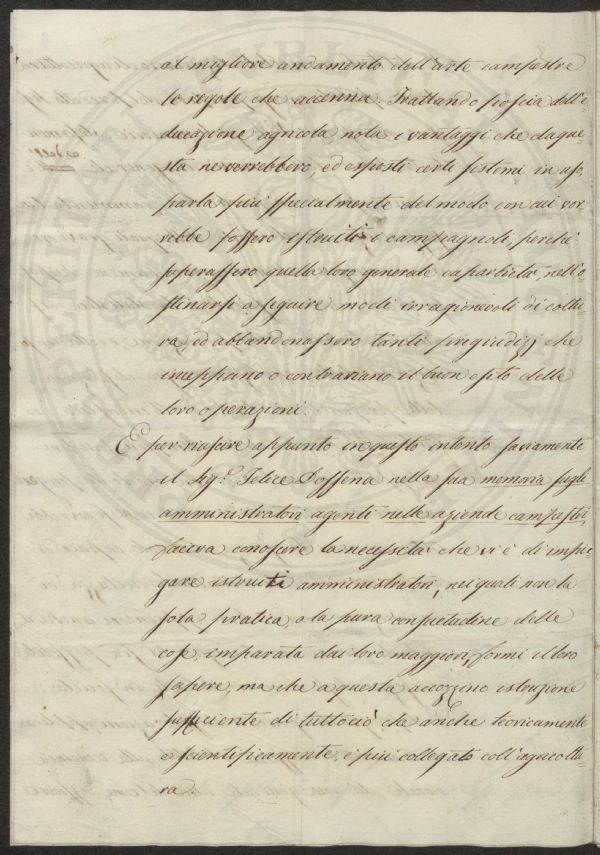 al migliore andamento dell'arte campestre
le regole che accenna. Trattando poscia dell'e-
ducazione agricola, nota i vantaggi che da que-
sta ne verrebbero, ed esposti certi sistemi in uso,
parla più specialmente del modo con cui vor-
rebbe fossero istruiti i campagnoli, perchè
superassero quella loro generale caparbietà, nell'o-
stinarsi a seguire modi irragionevoli di coltu-
ra, ed abbandonassero tanti pregiudizj che
inceppano o contrariano il buon esito delle
loro operazioni.
E per riuscire appunto in questo intento saviamente
il Sig.r Felice Dossena nella sua memoria sugli
amministratori agenti nelle aziende campestri,
faceva conoscere la necessità che vi è di impie-
gare istruiti amministratori, nei quali non la
sola pratica, o la pura consuetudine delle
cose, imparata dai loro maggiori, formi il loro
sapere, ma che a questa accozzino istruzione
sufficiente di tuttociò che anche teoricamente
e scientificamente, è più collegato coll'agricoltu-
ra.